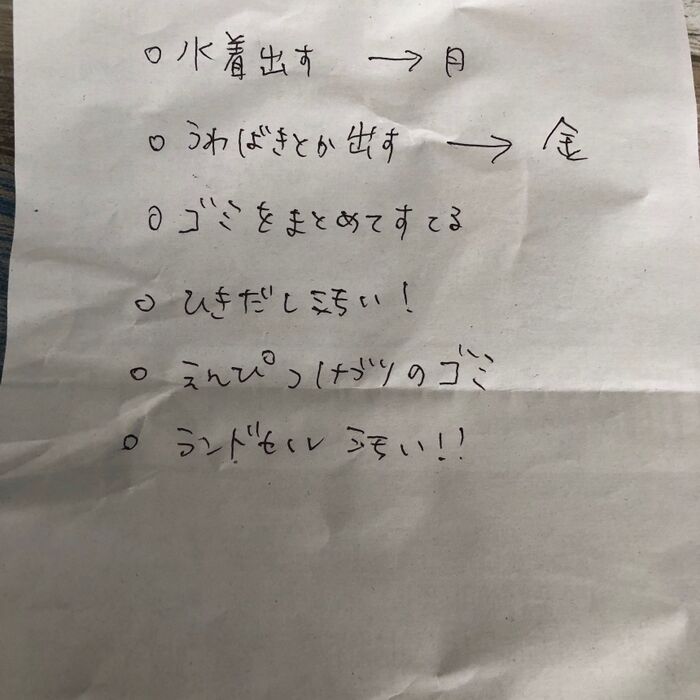 ○ 水着出す → 月
○ うわばきとか出す → 金
○ ゴミをまとめてすてる
○ ひきだし汚い!
○ えんぴつけずりのゴミ
○ ランドセル汚い!!